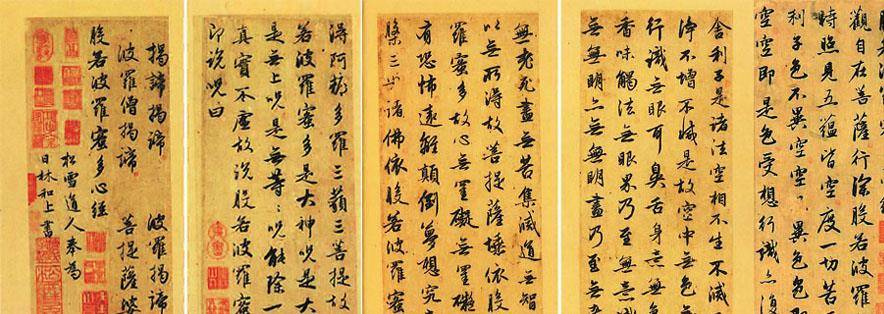 觀自在菩薩行深般若波羅
時照見五蘊皆空度一切苦
利子色不異空空不異色色即
空空即是色受想行識亦復
舍利子是諸法空相不生不滅
淨不增不減是故空中無色
行識無眼耳鼻舌身意無色
香味觸法無眼界乃至無意識
無無明亦無無明盡乃至無
無老死盡無苦集滅道無智
以無所得故菩提薩埵依般
羅蜜多故心無罣礙無罣礙
有恐怖遠離顛倒夢想究
槃三世諸佛依般若波羅蜜
得阿耨多羅三藐三菩提故
若波羅蜜多是大神咒是大
是無上咒是無等〻咒能除一
真實不虛故說般若波羅蜜
即說咒曰
揭諦揭諦　波羅揭諦
波羅僧揭諦　菩提薩婆
般若波羅蜜多心經
松雪道人奉為
日林和上書